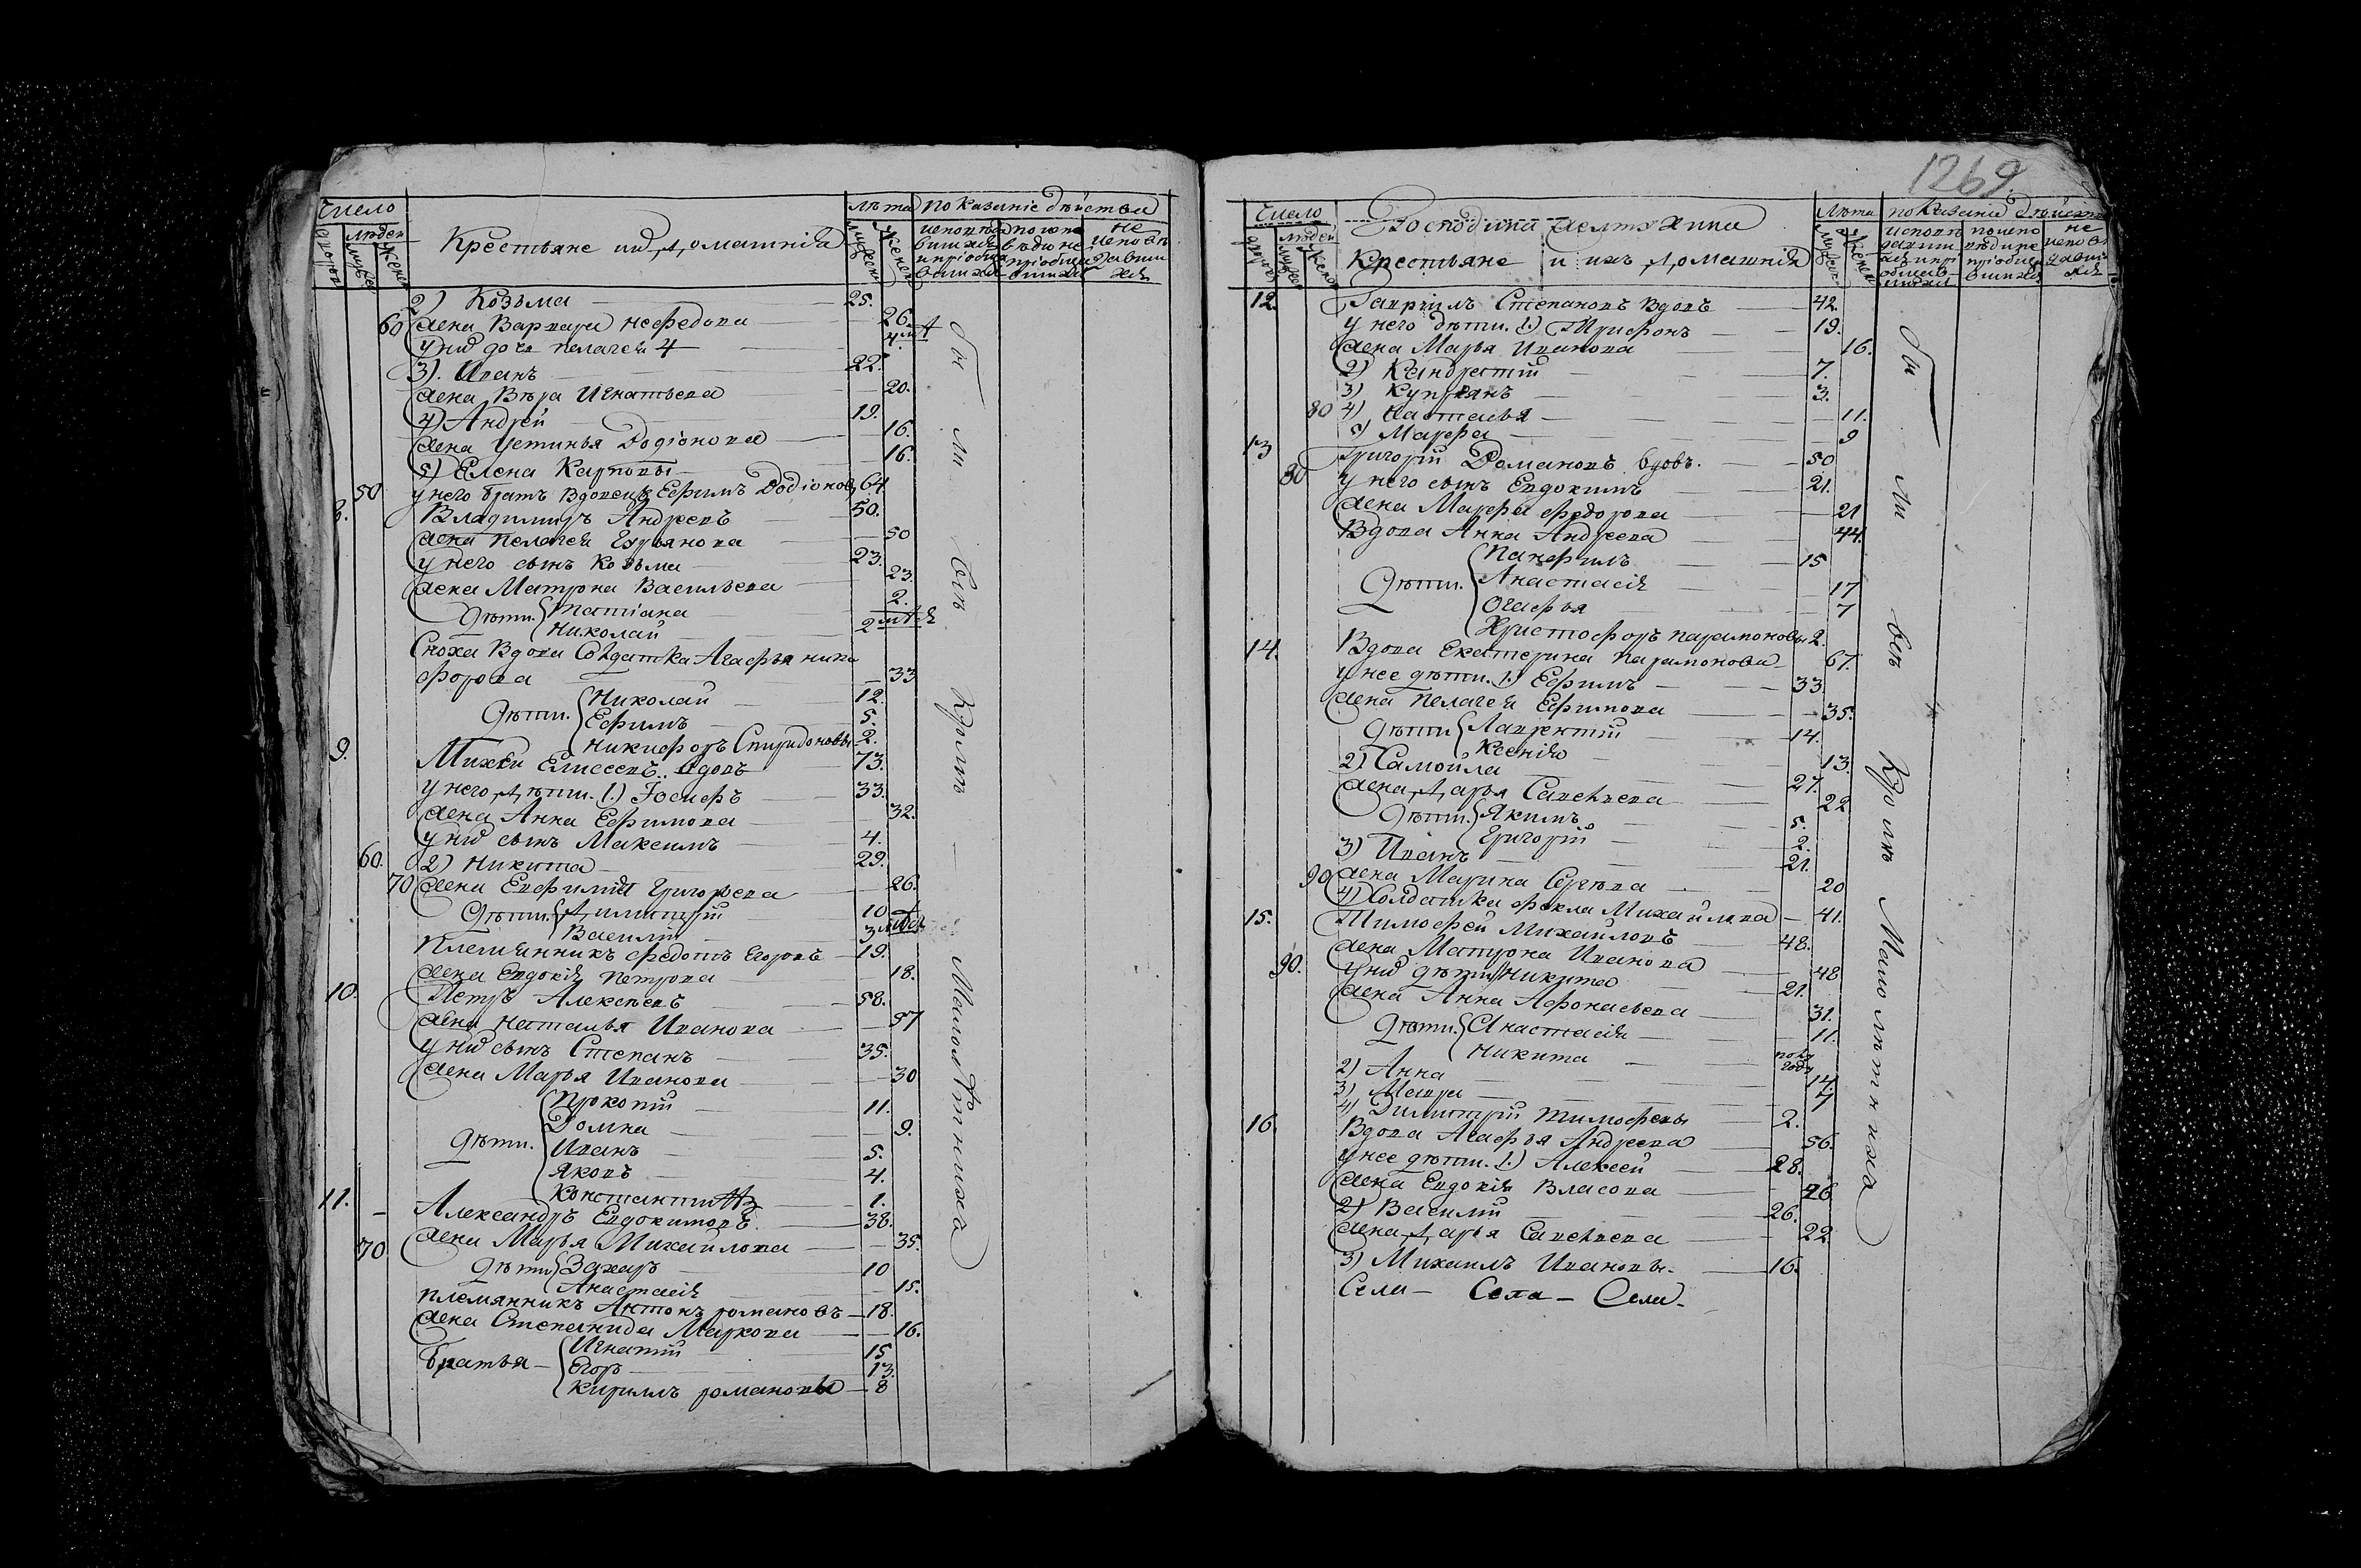 Число
людей
лѣта показаніе дѣйства
Крестьяне их домашнія
2) Козьма 25.
60 жена Варвара нефедова 26.
у них дочь пелагея 4
3). Иванъ 22.
жена Вѣра Игнатьева 20.
4) Андрей 19.
жена Устинья Родіонова 16.
5) Елена Карповы 16.
50 у него братъ вдовецъ Ефимъ Родіоновъ 64
8. Владимиръ Андреевъ 50.
жена пелагея 50
у него сынъ Козьма 23.
жена Матрона Васильева 23.
дѣти. Татіана 2.
Николай 2
Сноха Вдова Солдатка Агафья ники
форова 33
дѣти. Николай 12.
Ефимъ 5.
Никифоръ Спиридоновы 2.
9. Михей Елисеевъ вдовъ 73.
у него дѣти. 1.) Іосифъ 33.
жена Анна Ефимова 32.
у них сынъ Максимъ 4.
60. 2) Никита 29.
70 жена Евфимія Григорьева 26.
дѣти. Димитрій 10
Василій 3
племянникъ федотъ Егоровъ 19.
жена Евдокія петрова 18.
10. Петръ Алексѣевъ 58.
жена Наталья Иванова 57
у них сынъ Степанъ 35.
жена Марья Иванова 30
Прокопій 11.
Домна 9.
дѣти. Иванъ 5.
Яковъ 4.
Константинъ 1.
11. Александръ Евдокимовъ. 38.
70. жена Марья Михайлова 35.
дѣти Захаръ 10
Анастасія 15.
племянникъ Антонъ романовъ 18.
жена Степанида Маркова 16.
братья Игнатій 15
Егоръ 13.
Кирилъ романовы 8
бы ли всѣ Кромѣ Малолѣтнихъ
1269.
Число
людей
Господина Желтухина
Лѣта показаніе дѣйства
Крестьяне и ихъ домашнія
12. Гавріилъ Степановъ Вдовъ 42.
у него дѣти. 1.) Трифонъ 19.
жена Марья Иванова 16.
2) Кандратій 7.
3) Купріянъ 3.
80 4) Наталья 11.
5) Марфа 9
13 Григорій Романовъ вдовъ. 50
80 у него сынъ Евдокимъ 21.
жена Марфа федорова 21
Вдова Анна Андреева 44.
Панфилъ 15
дѣти. Анастасія 17
Огафья 7
Христофоръ парамоновы 2.
14. Вдова Екатерина парамонова 67.
у нее дѣти. 1.) Ефимъ 33
жена пелагея Ефимова 35.
дѣти Лаврентій 14.
Ксенія 13.
2) Самойла 27.
жена Дарья Савельева 22
дѣти. Якимъ 5.
Григорій 2.
3) Иванъ 21.
90 жена Марина Сергѣева 20
4) Солдатка фекла Михайлова 41.
15. Тимофей Михайловъ 48.
жена Матрона Иванова 48
90. у них дѣти Никита 21.
жена Анна Афонасьева 31.
дѣти. Анастасія 11.
Никита полу года
2) Анна 14.
3) Мавра 7
4) Димитрій Тимофеевы 2.
16. Вдова Агафья Андреева 56.
у нее дѣти. 1.) Алексей 28.
жена Евдокія Власова 26
2) Василій 26.
жена Дарья Савельева 22.
3) Михаилъ Ивановы. 16.
Села — Села — Села
бы ли всѣ Кромѣ Малолѣтнихъ